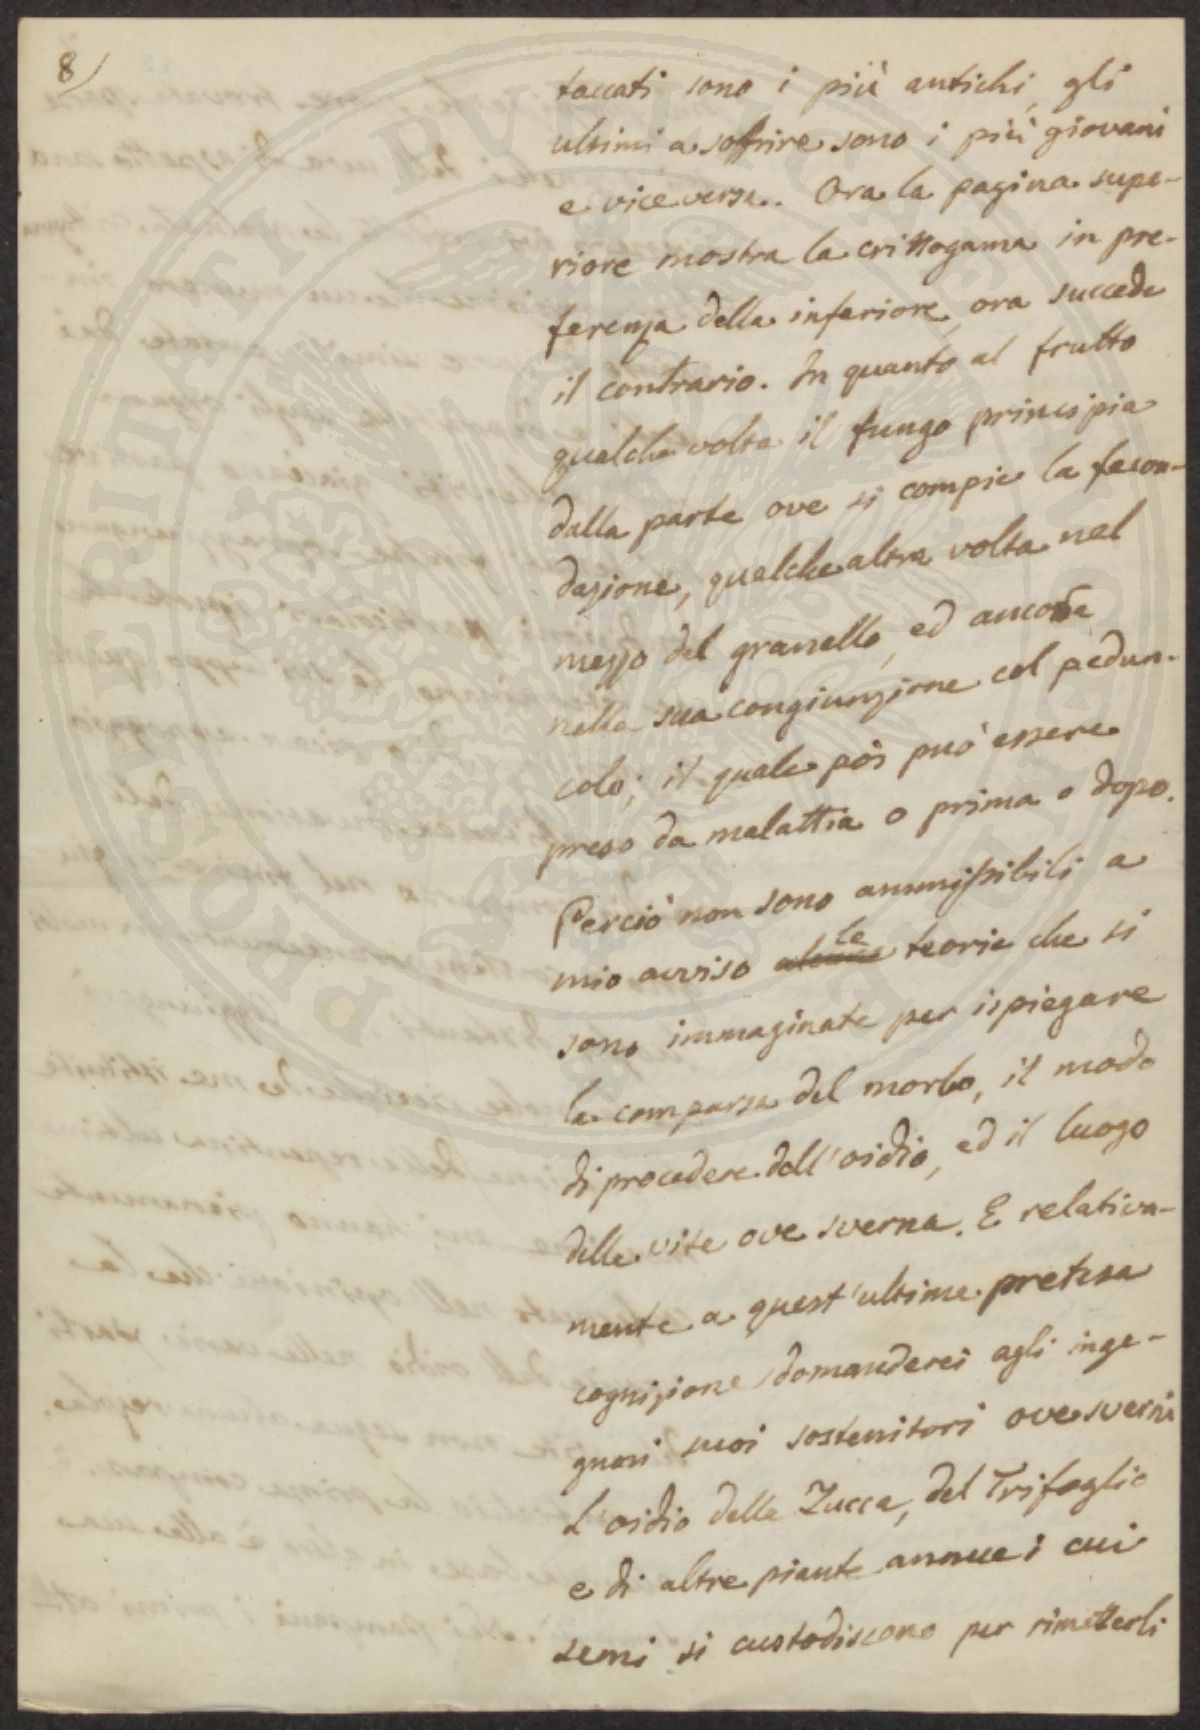 8/
taccati sono i più antichi, gli
ultimi a soffrire sono i più giovani
e viceversa. Ora la pagina supe-
riore mostra la crittogama in pre-
ferenza della inferiore, ora succede
il contrario. In quanto al frutto
qualche volta il fungo principia
dalla parte ove si compie la fecon-
dazione, qualche altra volta nel
mezzo del granello, ed ancora
nella sua congiunzione col pedun-
colo; il quale poi può essere
preso da malattia o prima o dopo.
Perciò non sono ammissibili a
mio avviso alcune le teorie che si
sono immaginate per ispiegare
la comparsa del morbo, il modo
di procedere dell'oidio, ed il luogo
della vite ove sverna. E relativa-
mente a quest'ultima pretesa
cognizione domanderei agli inge-
gnosi suoi sostenitori ove sverni
l'oidio della Zucca, del Trifoglio
e di altre piante annue i cui
semi si custodiscono per rimetterli